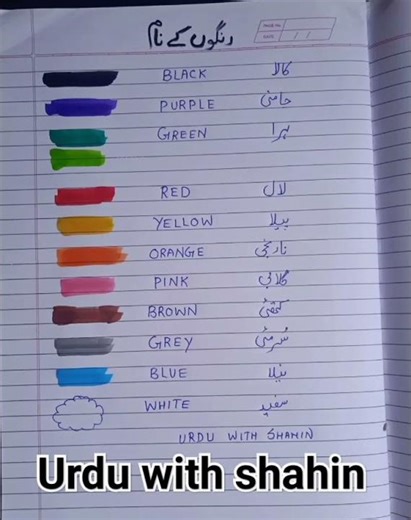 رنگوں کے نام
PAGE NO.
DATE / /
BLACK کالا
PURPLE جامنی
GREEN ہرا
RED لال
YELLOW پیلا
ORANGE نارنجی
PINK گلابی
BROWN کتھئی
GREY سُرمئی
BLUE نیلا
WHITE سفید
URDU WITH SHAHIN
Urdu with shahin